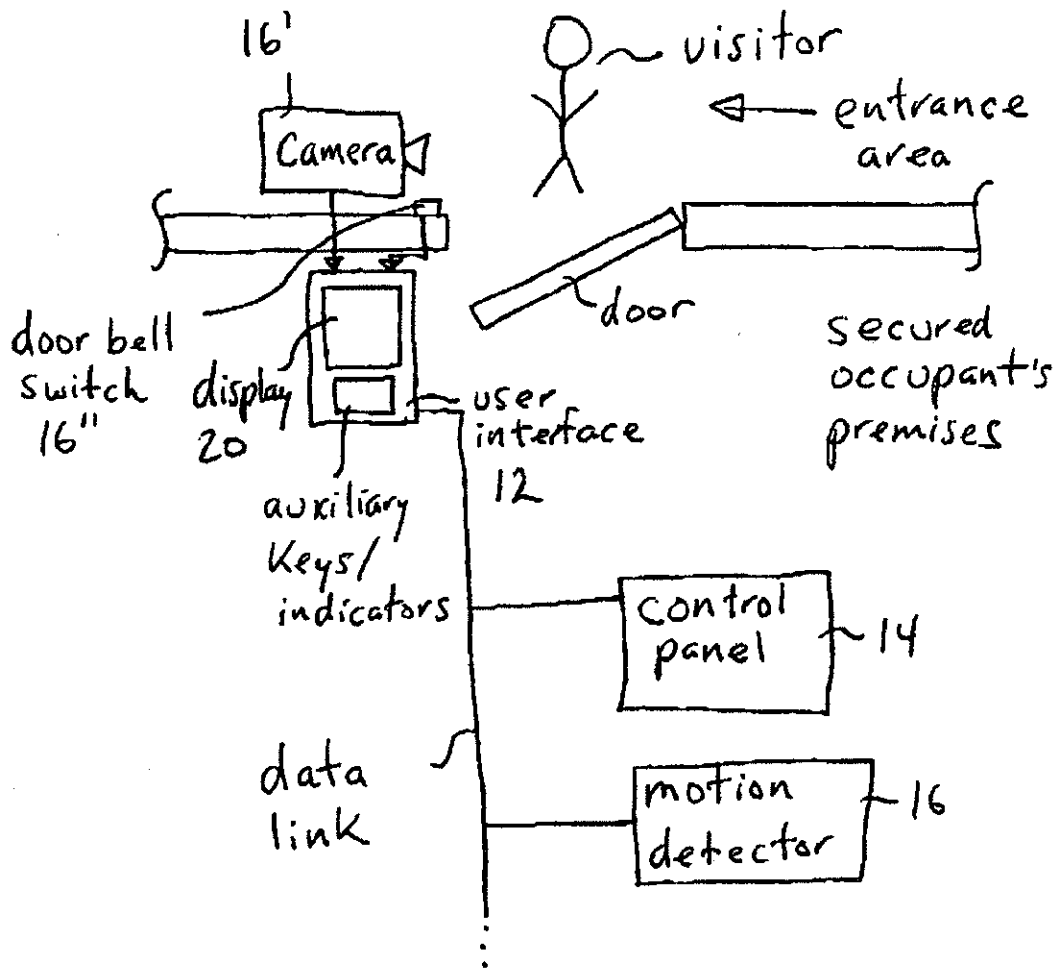 16'
visitor
Camera
entrance
area
door bell
switch
16"
display
20
door
user
interface
12
secured
occupant's
premises
auxiliary
Keys/
indicators
control
panel
14
data
link
motion
detector
16